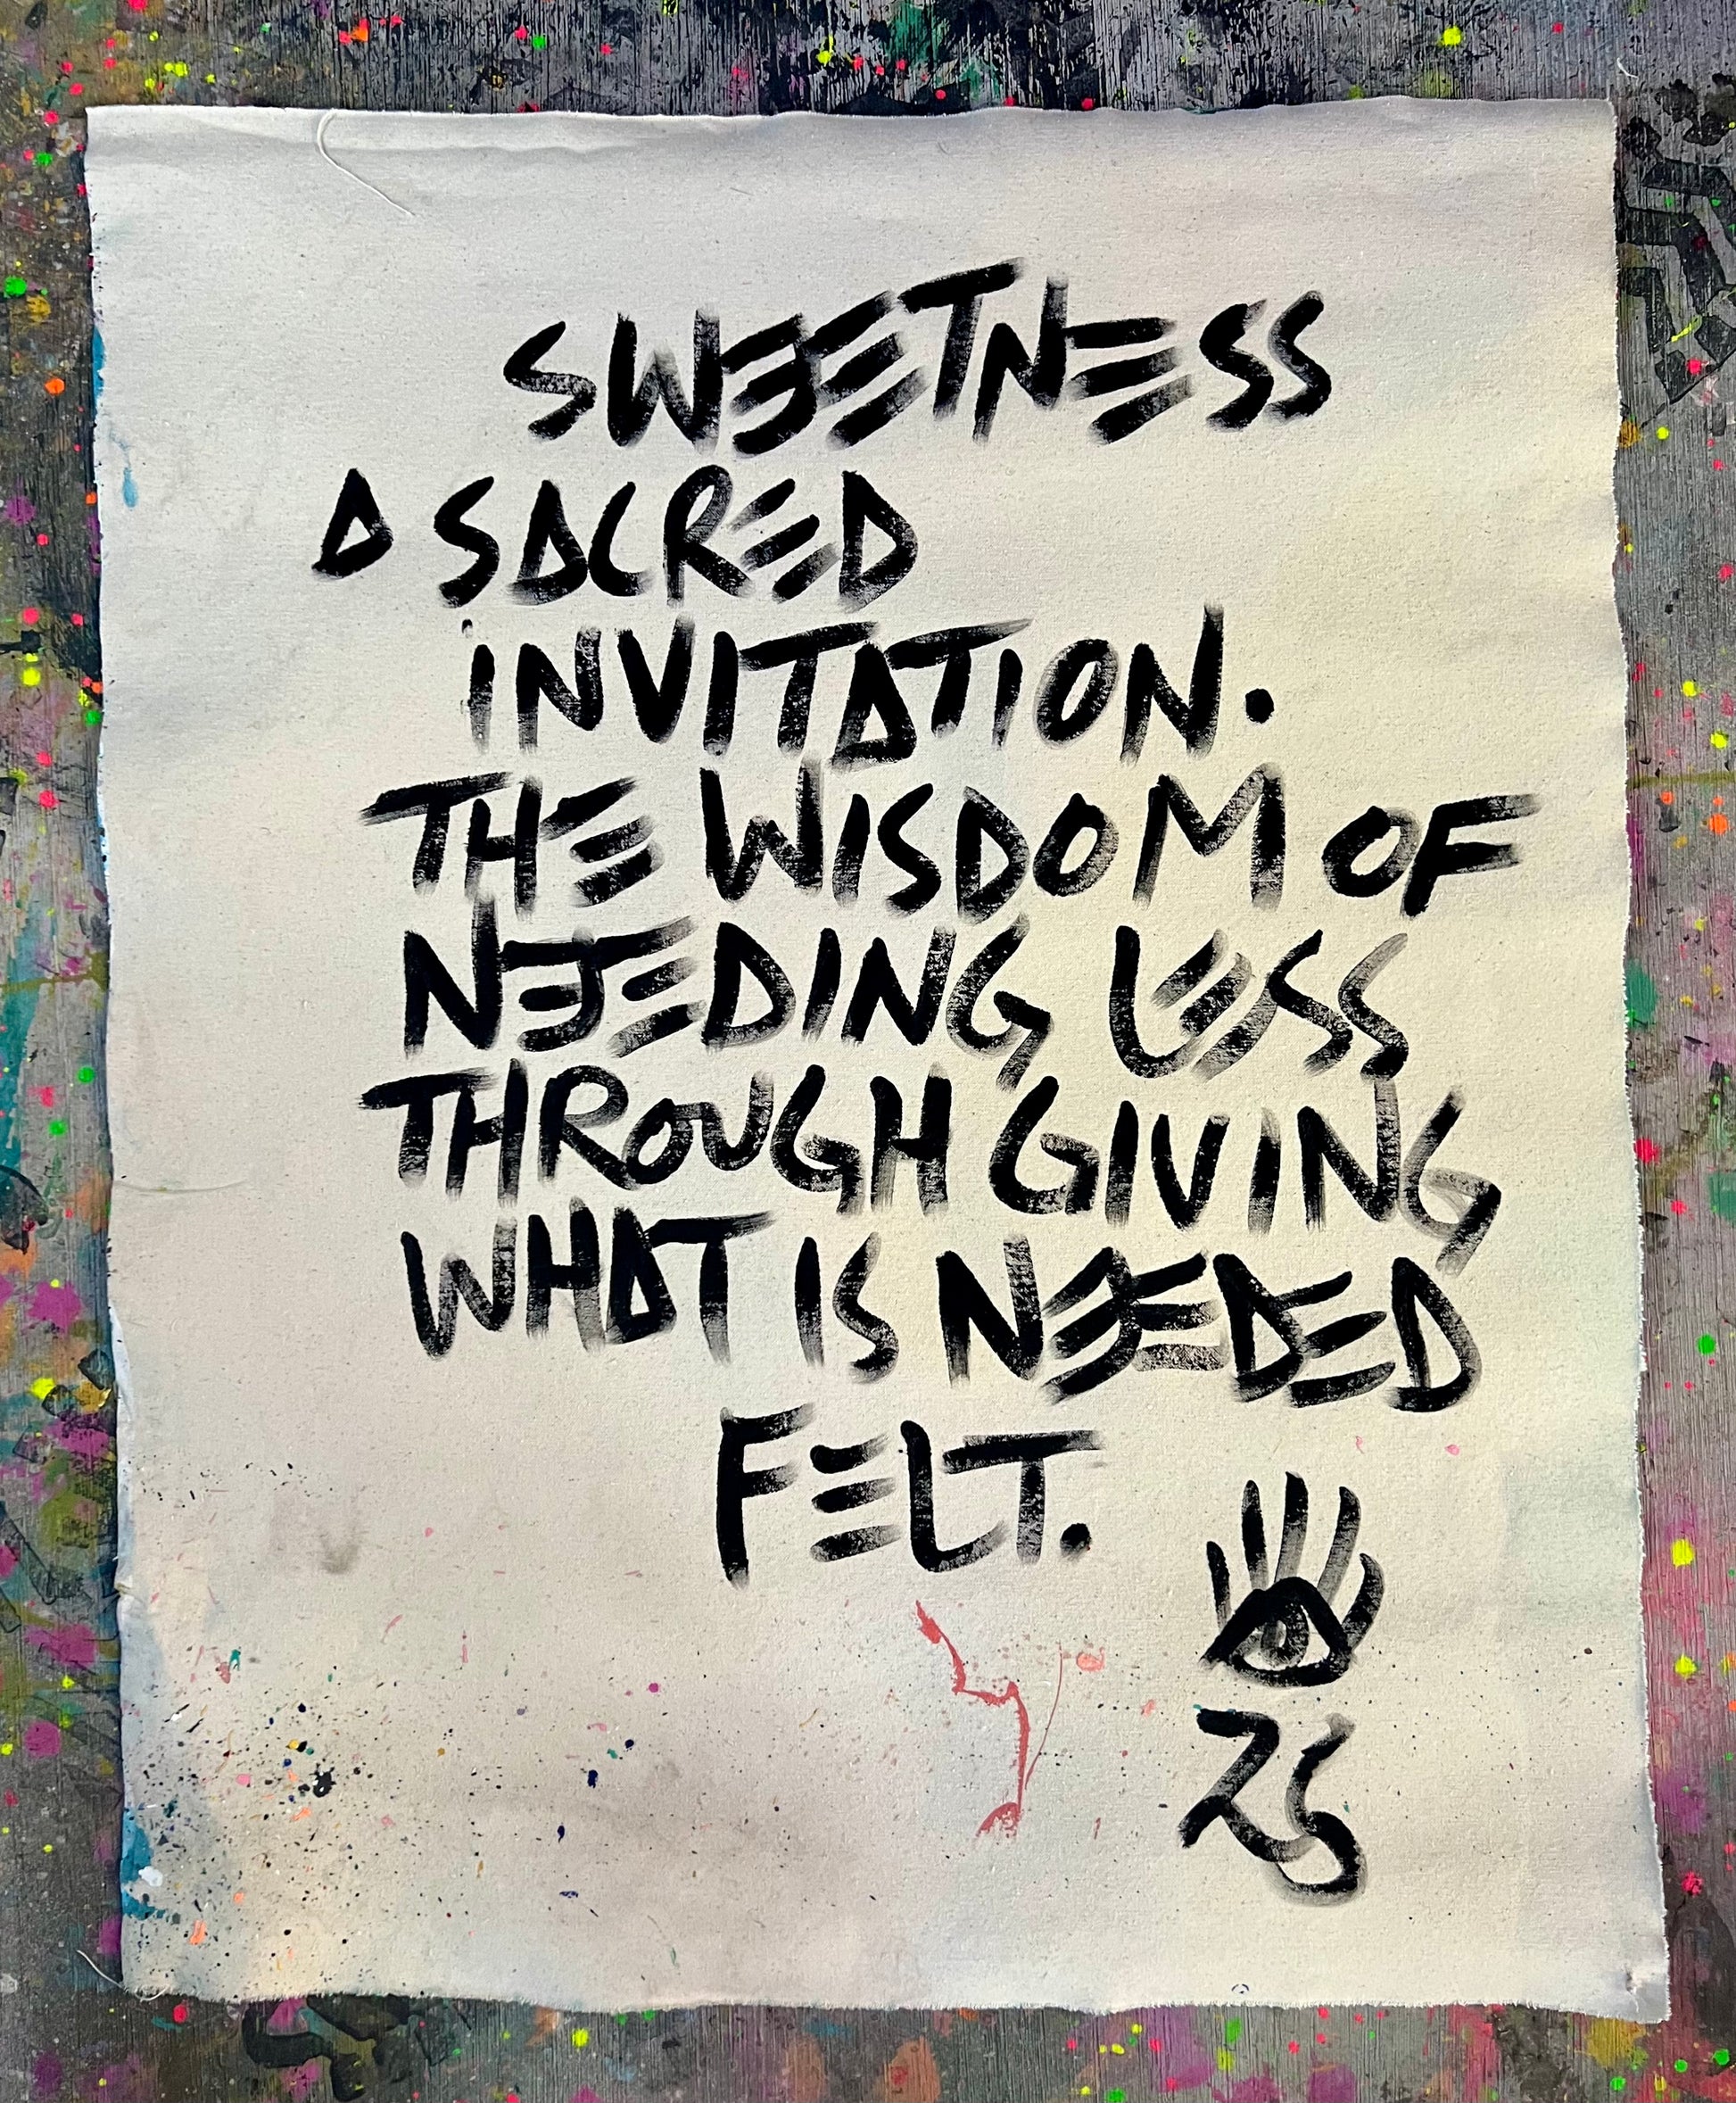 SWEETNESS
A SACRED
INVITATION.
THE WISDOM OF
NEEDING LESS
THROUGH GIVING
WHAT IS NEEDED
FELT.
25